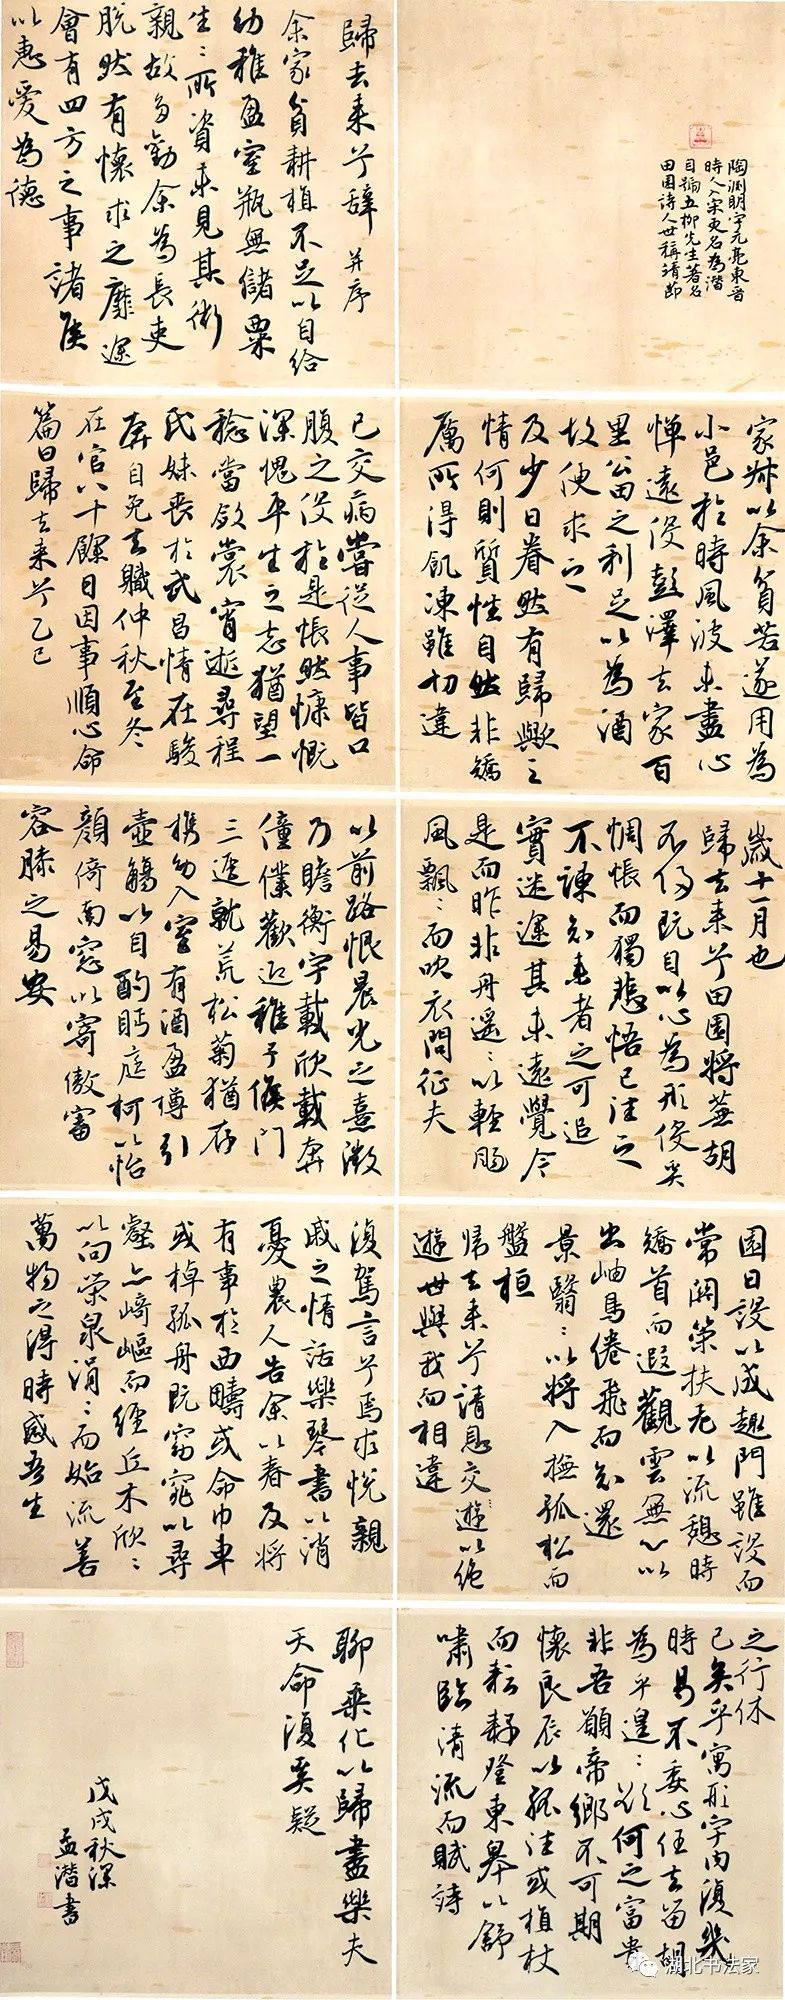 陶渊明字元亮東晋
時人入宋更名為潜
自號五柳先生著名
田園詩人世稱靖節
歸去来兮辭 并序
余家貧耕植不足以自给
幼稚盈室瓶無儲粟
生〻所資未見其術
親故多勸余為長吏
脱然有懷求之靡途
會有四方之事諸侯
以惠愛為德
家叔以余貧苦遂用為
小邑於時風波未盡心
惮遠役彭澤去家百
里公田之利足以為酒
故便求之
及少日眷然有歸歟之
情何則質性自然非矯
厲所得飢凍雖切違
已交病嘗從人事皆口
腹之役於是悵然慷慨
深愧平生之志猶望一
稔當斂裳宵逝尋程
氏妹喪於武昌情在駿
奔自免去職仲秋至冬
在官八十餘日因事順心命
篇曰歸去来兮乙巳
歲十一月也
歸去来兮田園將蕪胡
不歸既自以心為形役奚
惆悵而獨悲悟已往之
不諫知来者之可追
實迷途其未遠覺今
是而昨非舟遥〻以輕颺
風飄〻而吹衣問征夫
以前路恨晨光之熹微
乃瞻衡宇載欣載奔
僮僕歡迎稚子候門
三逕就荒松菊猶存
携幼入室有酒盈樽引
壺觴以自酌眄庭柯以怡
顔倚南窓以寄傲審
容膝之易安
園日設以成趣門雖設而
常關策扶老以流憩時
矯首而遐觀雲無心以
出岫鳥倦飛而知還
景翳〻以將入撫孤松而
盤桓
帰去来兮請息交遊以绝
遊世與我而相違
復駕言兮焉求悦親
戚之情話樂琴書以消
憂農人告余以春及將
有事於西疇或命巾車
或棹孤舟既窈窕以尋
壑亦崎嶇而經丘木欣〻
以向荣泉涓〻而始流善
萬物之得時感吾生
之行休
已矣乎寓形宇内復幾
時曷不委心任去留胡
為乎遑〻欲何之富貴
非吾願帝鄉不可期
懷良辰以孤往或植杖
而耘耔登東皋以舒
嘯臨清流而賦詩
聊乘化以歸盡樂夫
天命復奚疑
戊戌秋深
孟潜書
湖北书法家